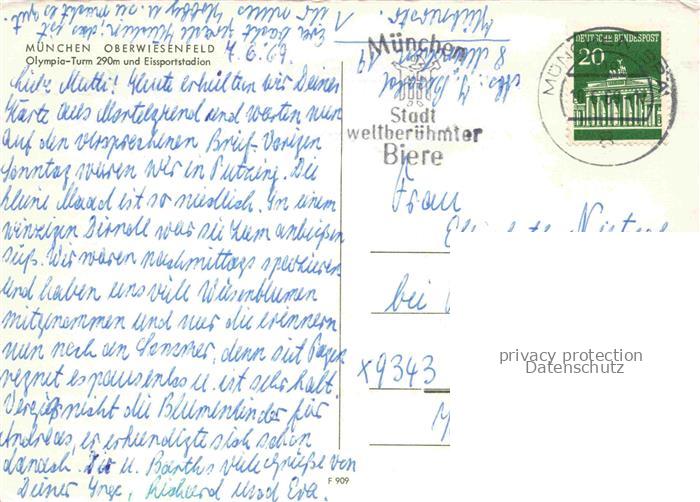 MÜNCHEN OBERWIESENFELD
Olympia-Turm 290m und Eissportstadion
7.6.69
Liebe Mutti! Heute erhielten wir Deine
Karte aus Martelgrend und warten nun
auf den versprochenen Brief. Vorigen
Sonntag waren wir in Putzing. Die
kleine Maad ist so niedlich. In einem
winzigen Dirndl war sie zum anbeißen
süß. Wir waren nachmittags spazieren
und haben uns viele Wiesenblumen
mitgenommen und nur die erinnern
nun noch an Sommer, denn seit Tagen
regnet es pausenlos u. ist sehr kalt.
Vergiß nicht die Blumenkinder für
Andreas, er erkundigte sich schon
danach. Dir u. Barths viele Grüße von
Deiner Inge, Richard und Eva.
F 909
München
Stadt
weltberühmter
Biere
DEUTSCHE BUNDESPOST
20
MÜNCHEN
Frau
bei
x9343
privacy protection
Datenschutz